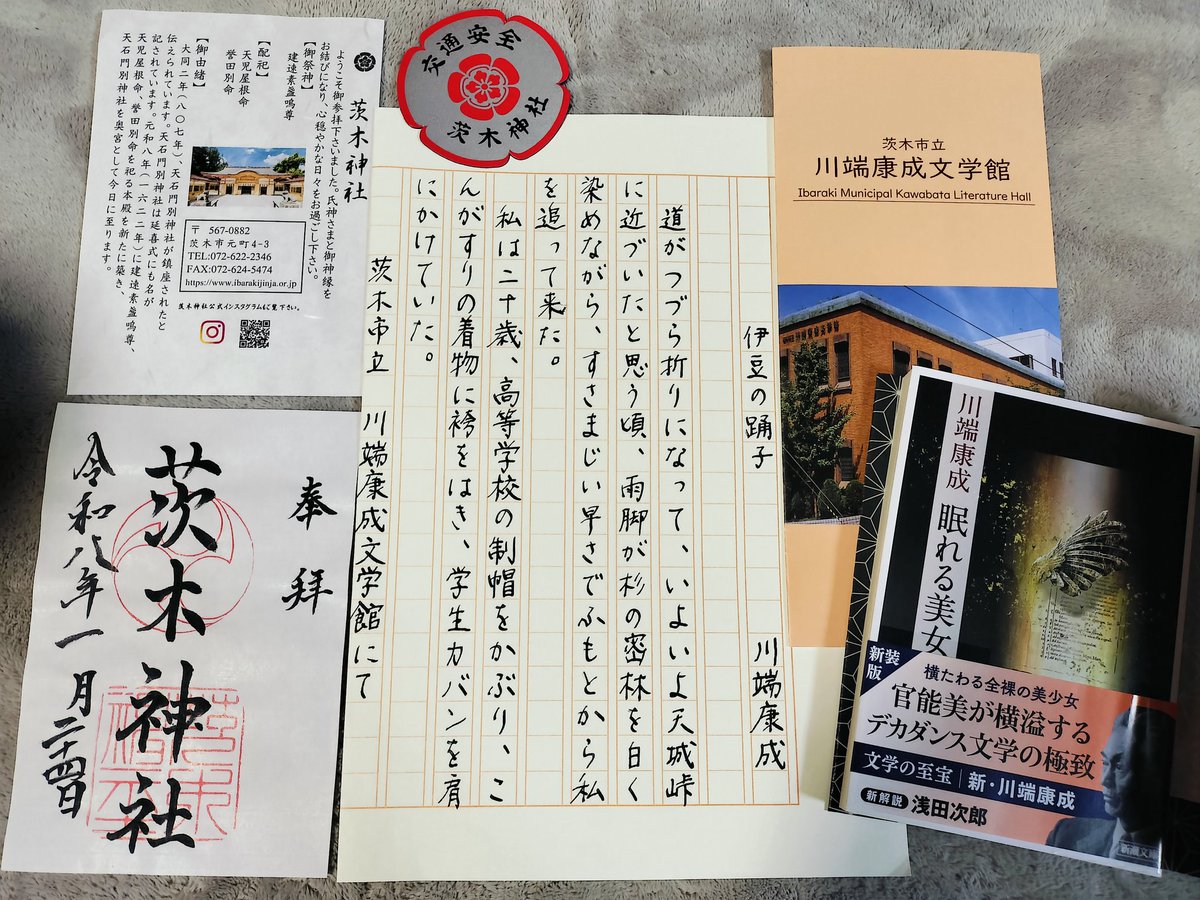 茨木神社
ようこそ御参拝下さいました。氏神さまと御神縁を
お結びになり、心穏やかな日々をお過ごし下さい。
【御祭神】
建速素盞嗚尊
【配祀】
天児屋根命
誉田別命
【御由緒】
大同二年(八〇七年)、天石門別神社が鎮座されたと
伝えられています。天石門別神社は延喜式にも名が
記されています。元和八年(一六二二年)に建速素盞嗚尊、
天児屋根命、誉田別命を祀る本殿を新たに築き、
天石門別神社を奥宮として今日に至ります。
〒 567-0882
茨木市元町4-3
TEL:072-622-2346
FAX:072-624-5474
https://www.ibarakijinja.or.jp
茨木神社公式インスタグラムもご覧下さい。
交通安全
茨木神社
奉拝
茨木神社
令和八年一月二十四日
伊豆の踊子
川端康成
道がつづら折りになって、いよいよ天城峠
に近づいたと思う頃、雨脚が杉の密林を白く
染めながら、すさまじい早さでふもとから私
を追って来た。
私は二十歳、高等学校の制帽をかぶり、こ
んがすりの着物に袴をはき、学生カバンを肩
にかけていた。
茨木市立 川端康成文学館にて
茨木市立
川端康成文学館
Ibaraki Municipal Kawabata Literature Hall
川端康成
眠れる美女
新装版
横たわる全裸の美少女
官能美が横溢する
デカダンス文学の極致
文学の至宝|新・川端康成
新解説 浅田次郎
新潮文庫